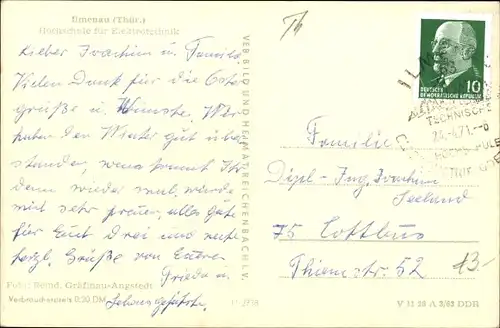 Ilmenau (Thür.)
Hochschule für Elektrotechnik
Lieber Joachim u. Familie
Vielen Dank für die Oster
grüße u. Wünsche. Wir
haben den Winter gut über
standen, wann kommt Ihr
denn wieder mal, würde
mich sehr freuen, alles Gute
für Euch Drei und recht
herzl. Grüße von Eurer
Frieda u.
Foto: Gräfinau-Angstedt
Verbraucherpreis 0,20 DM
VEB BILD UND HEIMAT REICHENBACH I. V.
DEUTSCHE
DEMOKRATISCHE REPUBLIK
10
TECHNISCHE
24.-4.71.-0
HOCHSCHULE
Familie
Dipl.-Ing. Joachim
Seeland
75 Cottbus
Thiemstr. 52
V 11 28 A 3/63 DDR